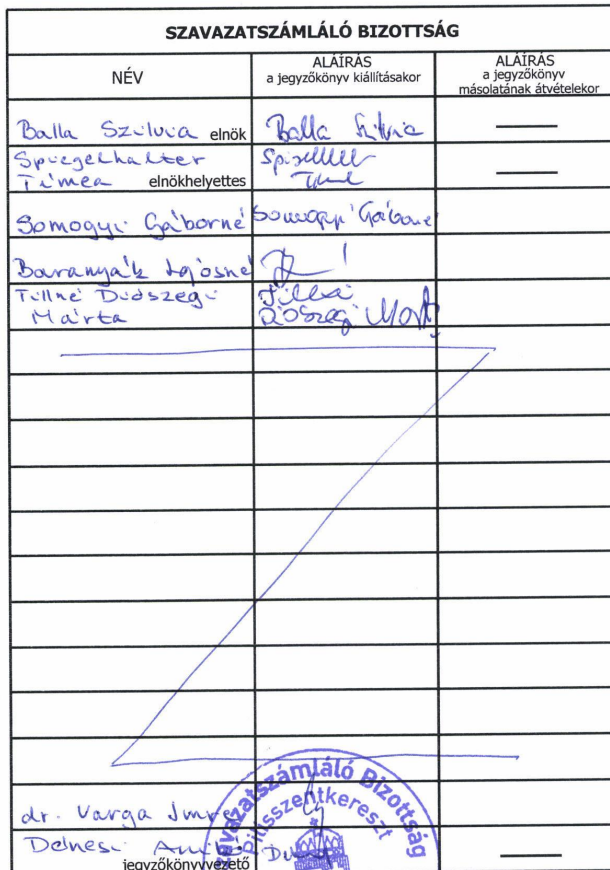 SZAVAZATSZÁMLÁLÓ BIZOTTSÁG
NÉV
ALÁÍRÁS
a jegyzőkönyv kiállításakor
ALÁÍRÁS
a jegyzőkönyv
másolatának átvételekor
Balla Szilvia elnök Balla Szilvia
Spiegelhalter
Tímea elnökhelyettes
Somogyi Gáborné Somogyi Gáborné
Baranyák Lajosné
Tillné Diószegi
Márta
Diószegi Márta
dr. Varga Imre
jegyzőkönyvvezető
Szavazatszámláló Bizottság
Pilisszentkereszt